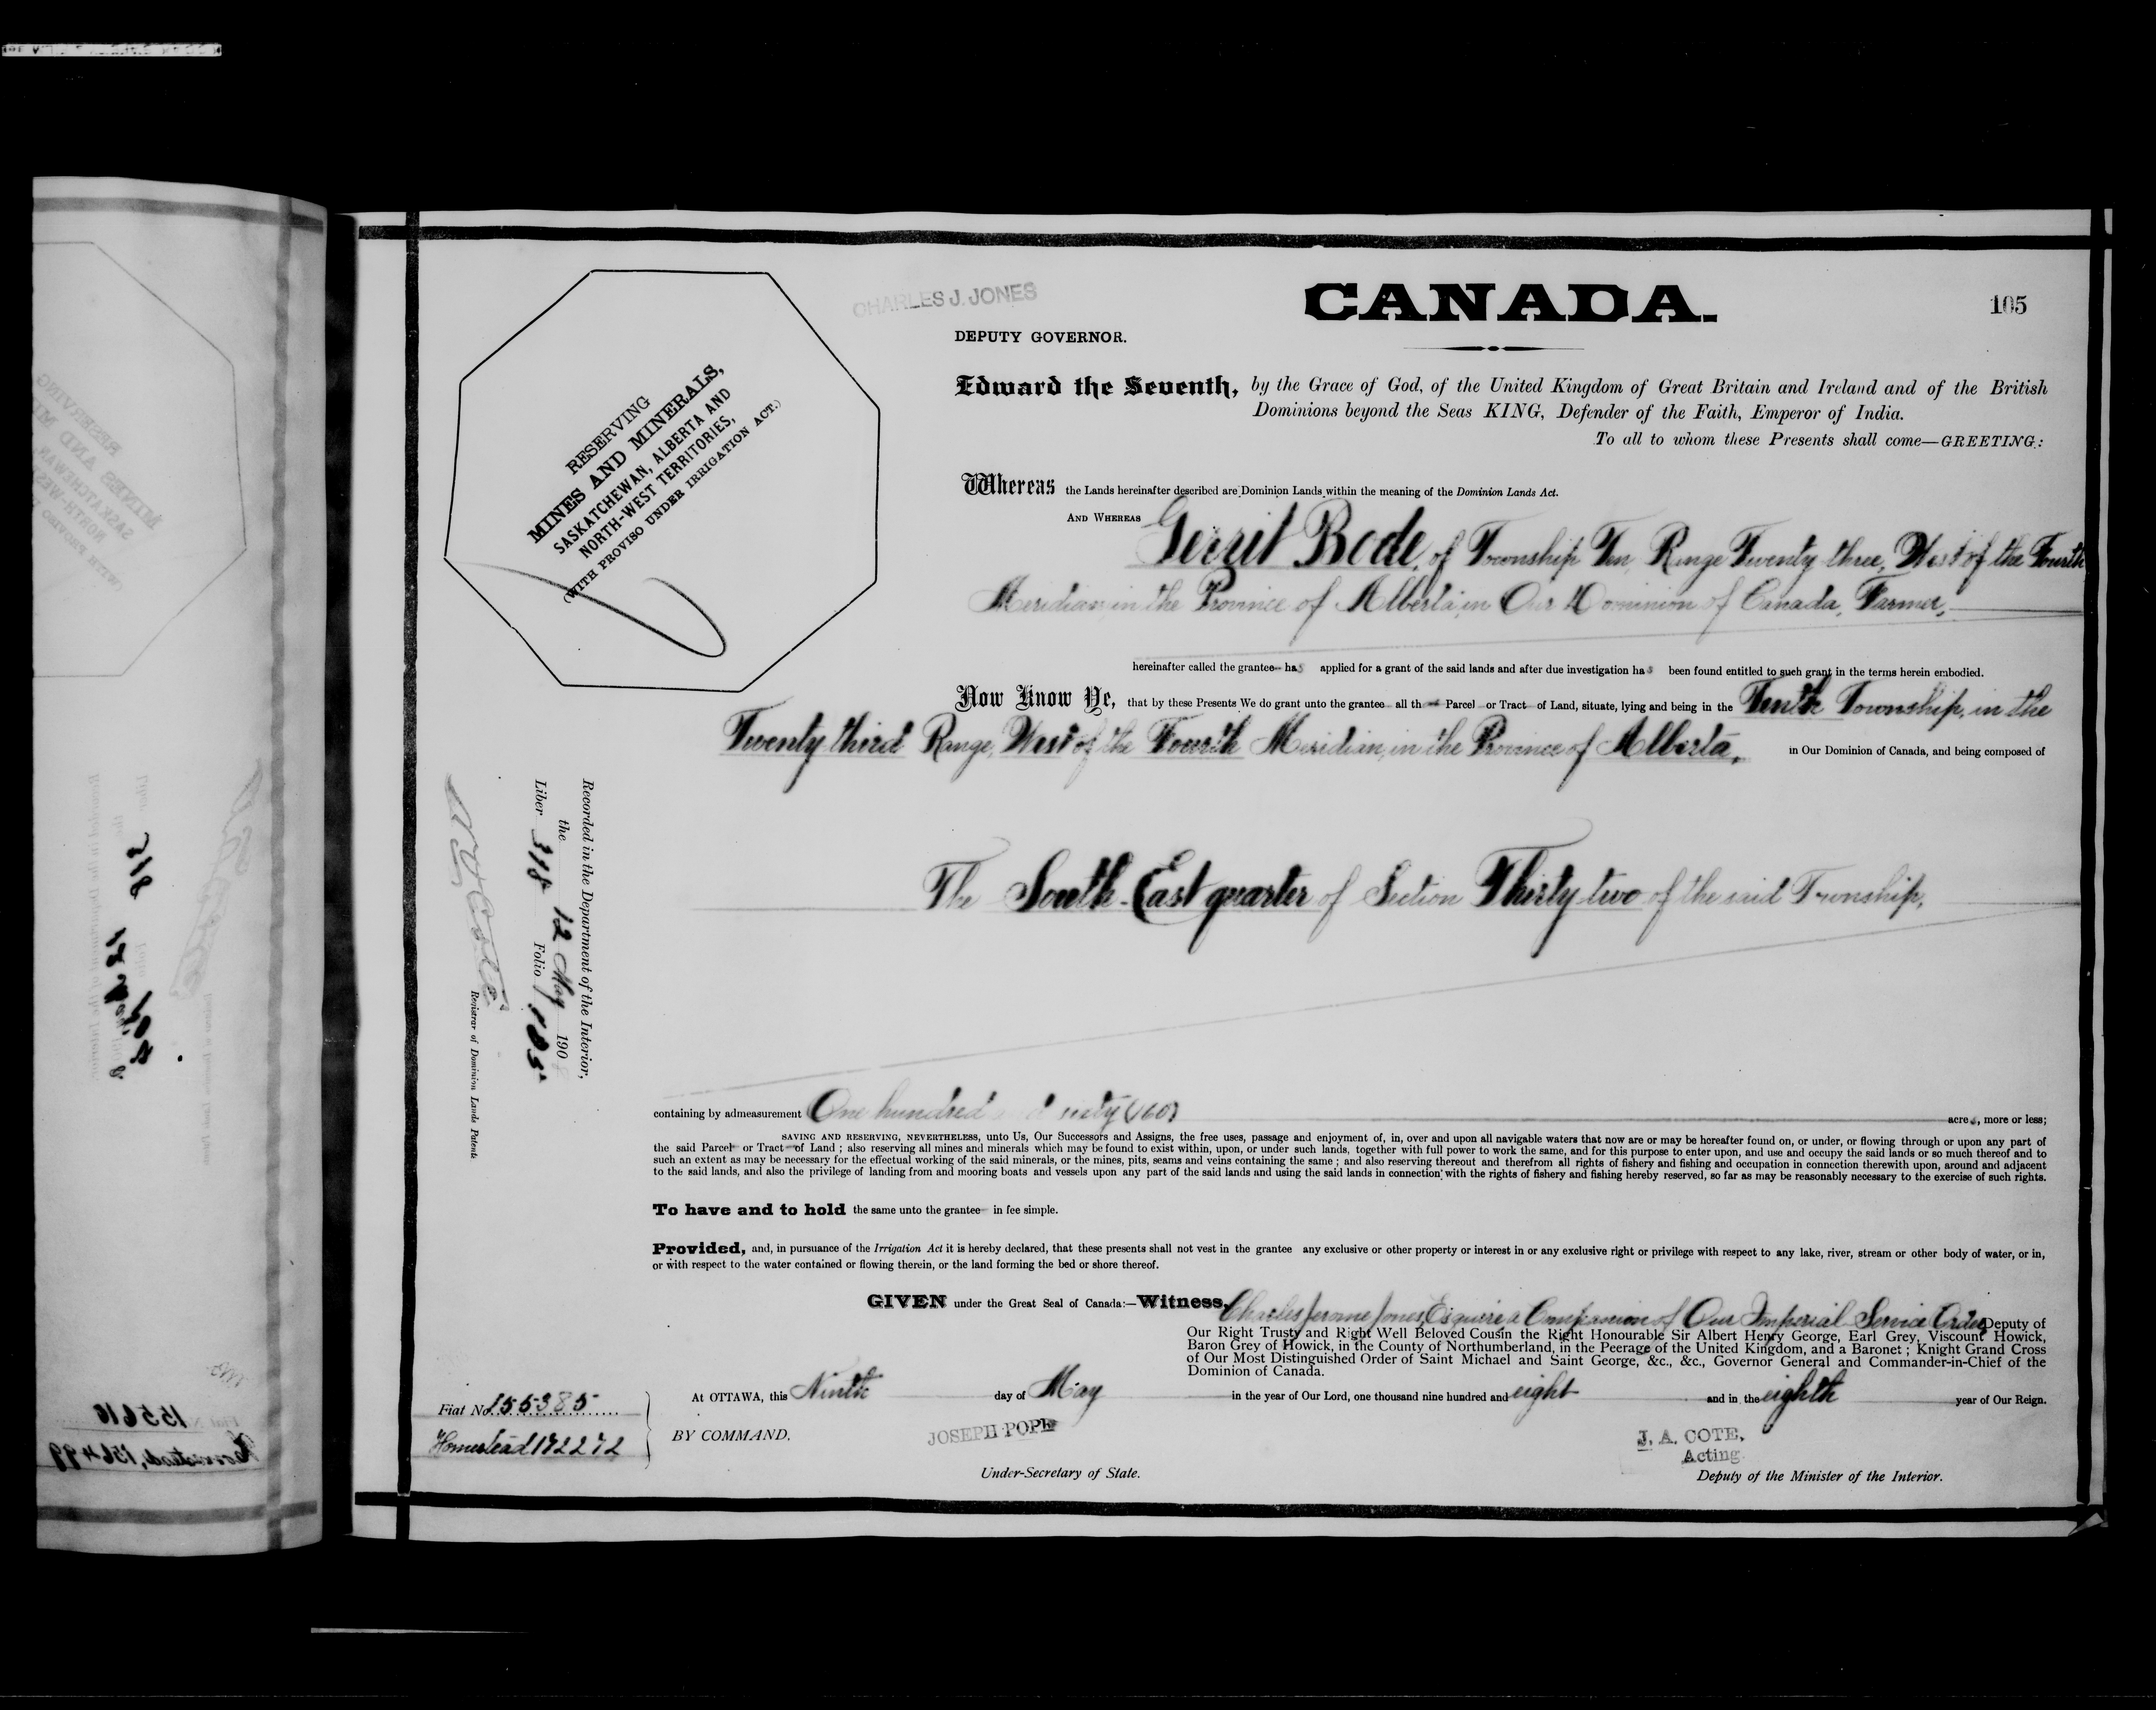 CHARLES J. JONES
CANADA.
105
DEPUTY GOVERNOR.
RESERVING
MINES AND MINERALS,
SASKATCHEWAN, ALBERTA AND
NORTH-WEST TERRITORIES,
(WITH PROVISO UNDER IRRIGATION ACT.)
Edward the Seventh, by the Grace of God, of the United Kingdom of Great Britain and Ireland and of the British
Dominions beyond the Seas KING, Defender of the Faith, Emperor of India.
To all to whom these Presents shall come—GREETING:
Whereas the Lands hereinafter described are Dominion Lands within the meaning of the Dominion Lands Act.
AND WHEREAS Gerrit Bode, of Township Ten, Range Twenty three, West of the Fourth
Meridian, in the Province of Alberta, in Our Dominion of Canada, Farmer,
hereinafter called the grantee has applied for a grant of the said lands and after due investigation has been found entitled to such grant in the terms herein embodied.
Now Know Ye, that by these Presents We do grant unto the grantee all th at Parcel or Tract of Land, situate, lying and being in the Tenth Township, in the
Twenty third Range, West of the Fourth Meridian, in the Province of Alberta, in Our Dominion of Canada, and being composed of
The South East quarter of Section Thirty two of the said Township,
Recorded in the Department of the Interior,
the 12 May 190
Liber 318 Folio 105
N O Coté
Registrar of Dominion Lands Patents
containing by admeasurement One hundred and sixty (160) acres, more or less;
SAVING AND RESERVING, NEVERTHELESS, unto Us, Our Successors and Assigns, the free uses, passage and enjoyment of, in, over and upon all navigable waters that now are or may be hereafter found on, or under, or flowing through or upon any part of
the said Parcel or Tract of Land ; also reserving all mines and minerals which may be found to exist within, upon, or under such lands, together with full power to work the same, and for this purpose to enter upon, and use and occupy the said lands or so much thereof and to
such an extent as may be necessary for the effectual working of the said minerals, or the mines, pits, seams and veins containing the same ; and also reserving thereout and therefrom all rights of fishery and fishing and occupation in connection therewith upon, around and adjacent
to the said lands, and also the privilege of landing from and mooring boats and vessels upon any part of the said lands and using the said lands in connection with the rights of fishery and fishing hereby reserved, so far as may be reasonably necessary to the exercise of such rights.
To have and to hold the same unto the grantee in fee simple.
Provided, and, in pursuance of the Irrigation Act it is hereby declared, that these presents shall not vest in the grantee any exclusive or other property or interest in or any exclusive right or privilege with respect to any lake, river, stream or other body of water, or in,
or with respect to the water contained or flowing therein, or the land forming the bed or shore thereof.
GIVEN under the Great Seal of Canada:—Witness, Charles Jerome Jones, Esquire a Companion of Our Imperial Service Order, Deputy of
Our Right Trusty and Right Well Beloved Cousin the Right Honourable Sir Albert Henry George, Earl Grey, Viscount Howick,
Baron Grey of Howick, in the County of Northumberland, in the Peerage of the United Kingdom, and a Baronet ; Knight Grand Cross
of Our Most Distinguished Order of Saint Michael and Saint George, &c., &c., Governor General and Commander-in-Chief of the
Dominion of Canada.
At OTTAWA, this Ninth day of May in the year of Our Lord, one thousand nine hundred and eight and in the eighth year of Our Reign.
Fiat No. 155385
Homestead 172272
BY COMMAND.
JOSEPH POPE
Under-Secretary of State.
J. A. COTE,
Acting
Deputy of the Minister of the Interior.